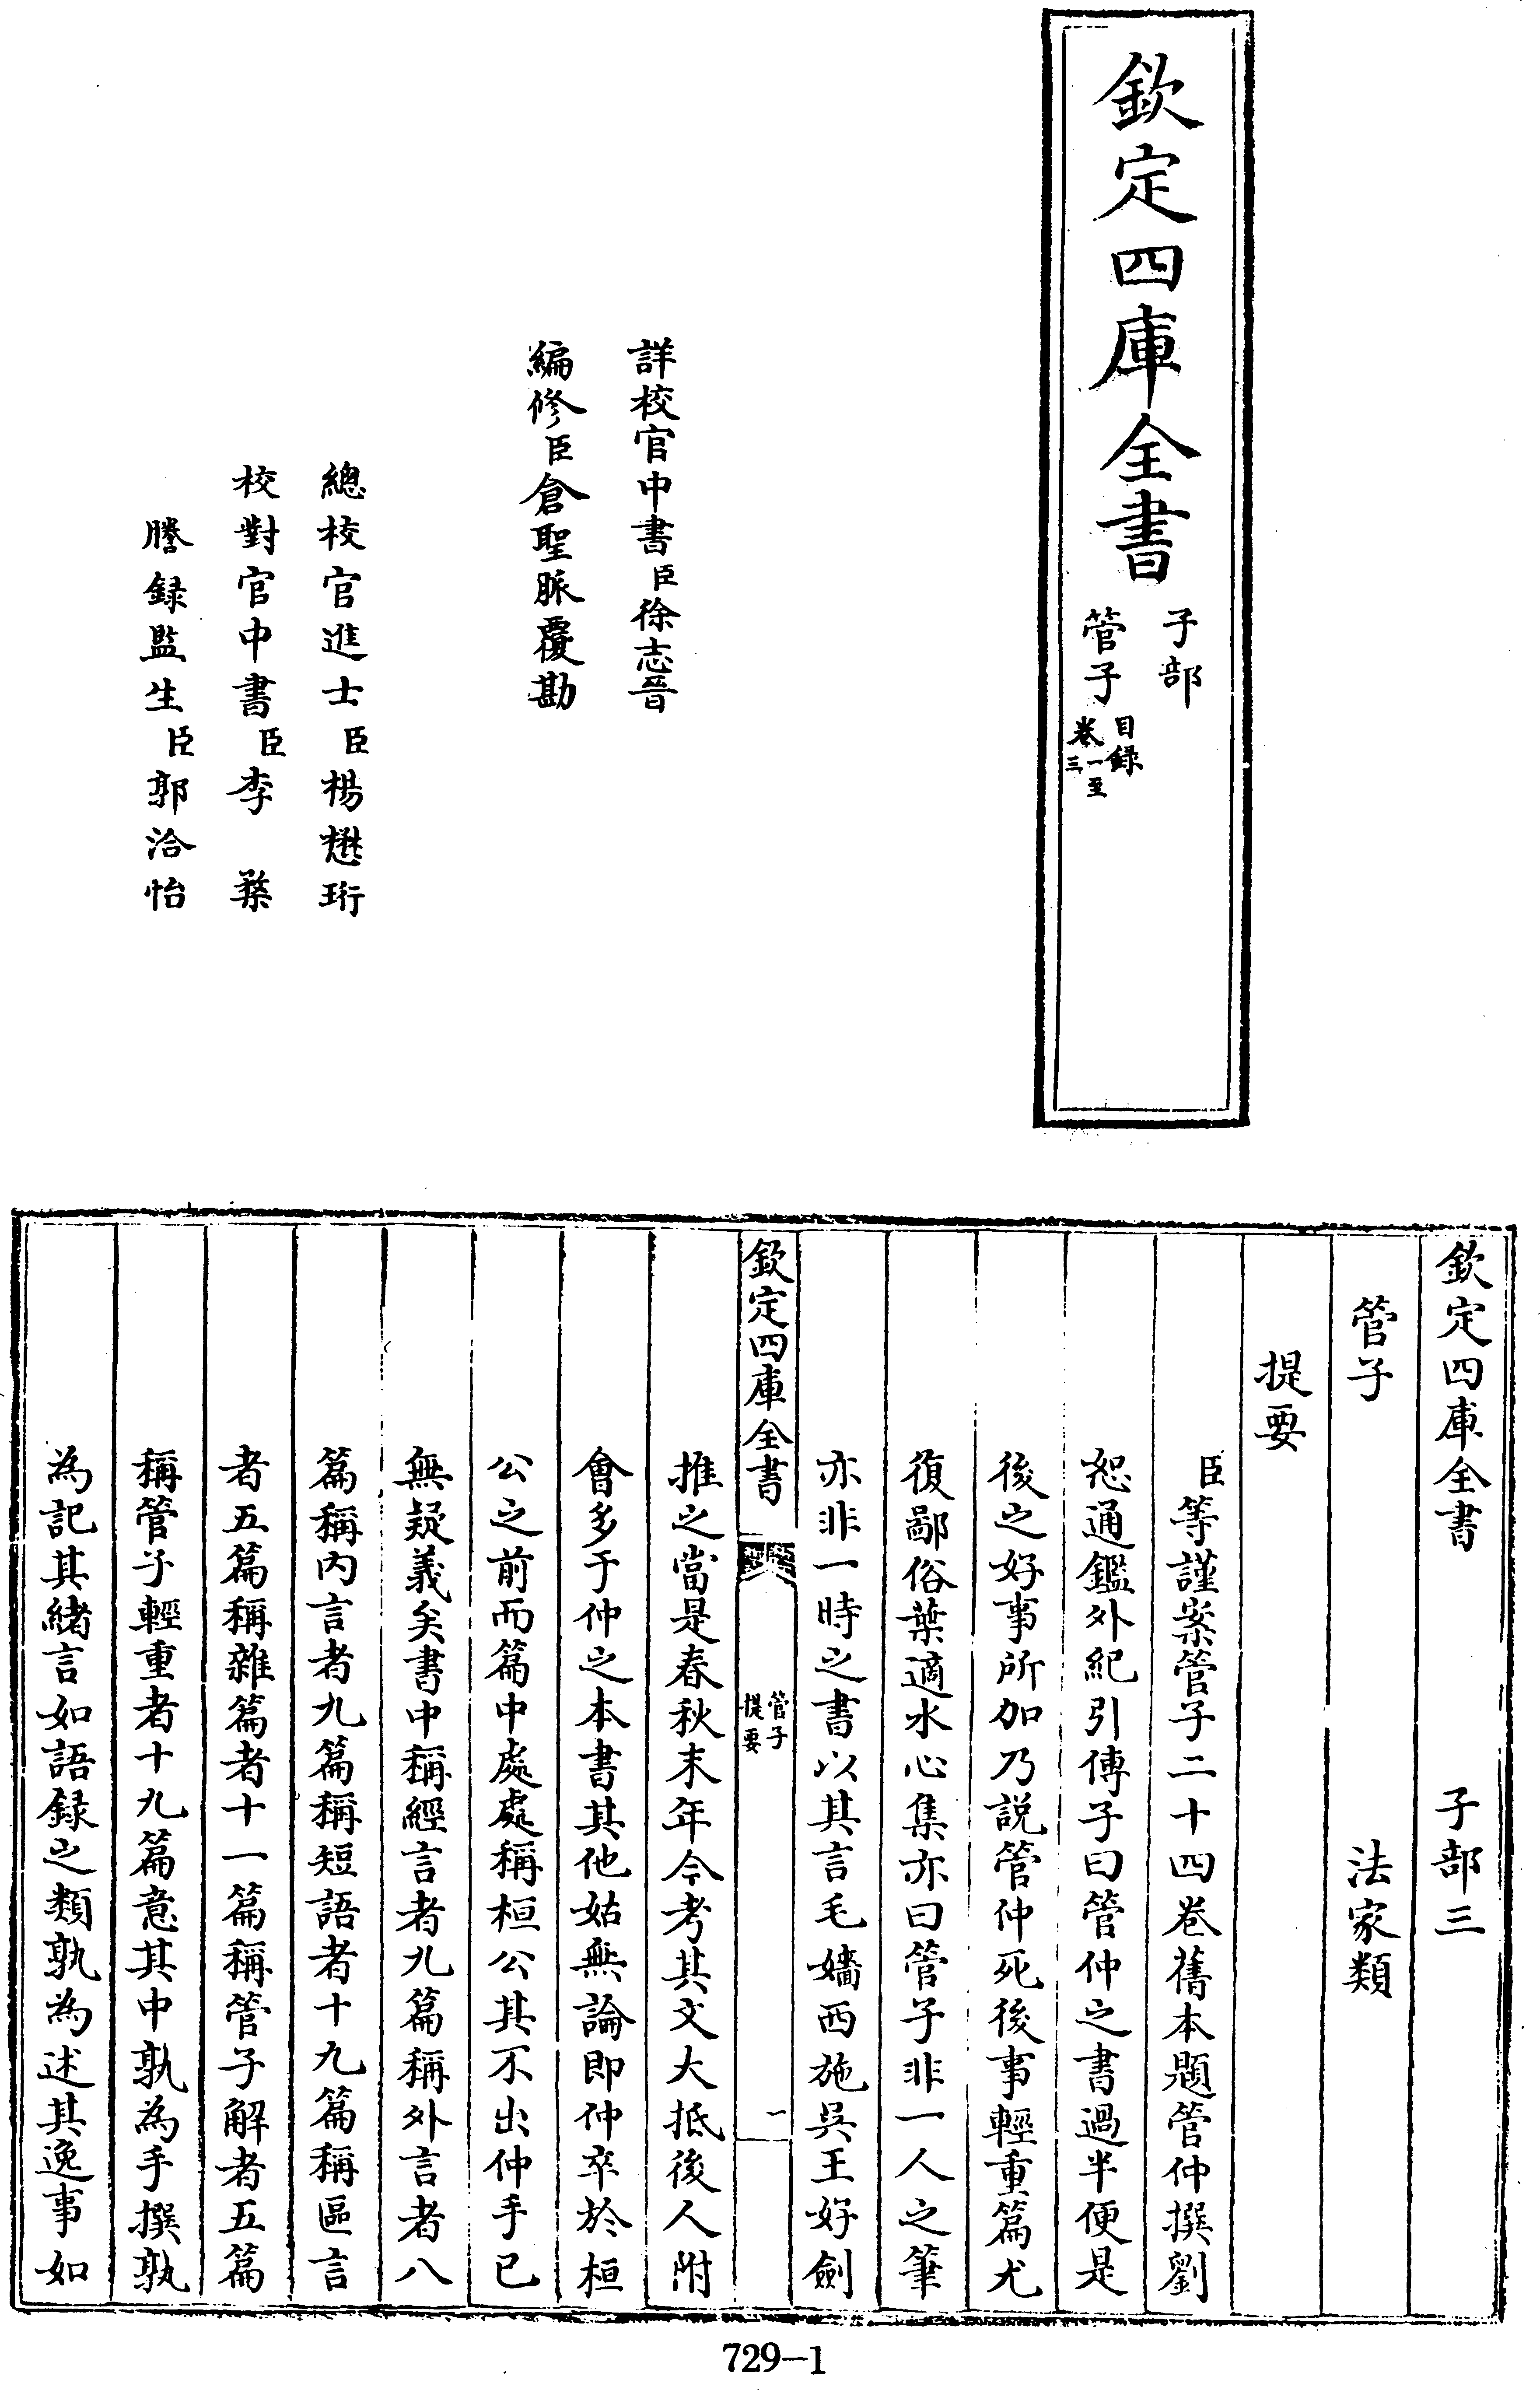 欽定四庫全書
子部
管子
目録
卷一至
三
詳校官中書臣徐志晉
編修臣倉聖脈覆勘
總校官進士臣楊懋珩
校對官中書臣李
謄録監生臣郭洽怡
欽定四庫全書 子部三
管子 法家類
提要
臣等謹案管子二十四卷舊本題管仲撰劉
恕通鑑外紀引傅子曰管仲之書過半便是
後之好事所加乃説管仲死後事輕重篇尤
復鄙俗葉適水心集亦曰管子非一人之筆
亦非一時之書以其言毛嬙西施吳王好劍
欽定四庫全書
管子
提要
一
推之當是春秋末年今考其文大抵後人附
會多于仲之本書其他姑無論即仲卒於桓
公之前而篇中處處稱桓公其不出仲手已
無疑義矣書中稱經言者九篇稱外言者八
篇稱內言者九篇稱短語者十九篇稱區言
者五篇稱雜篇者十一篇稱管子解者五篇
稱管子輕重者十九篇意其中孰為手撰孰
為記其緒言如語録之類孰為述其逸事如
729-1